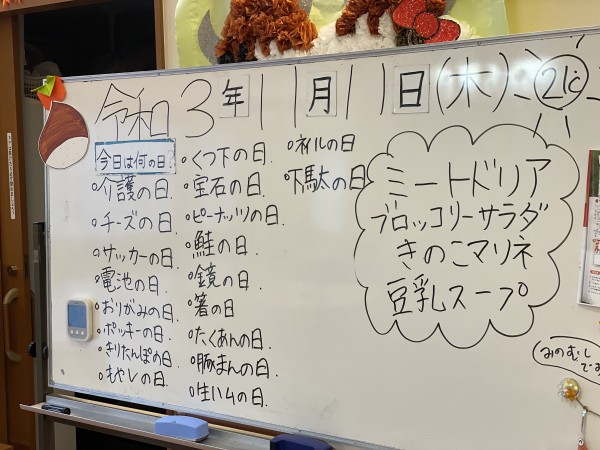 令和3年11月11日(木) 21℃
今日は何の日?
・介護の日.
・チーズの日.
・サッカーの日.
・電池の日.
・おりがみの日.
・ポッキーの日.
・きりたんぽの日.
・もやしの日.
・くつ下の日.
・宝石の日.
・ピーナッツの日.
・鮭の日.
・鏡の日.
・箸の日
・たくあんの日.
・豚まんの日.
・生ハムの日.
・ネイルの日
・下駄の日
ミートドリア
ブロッコリーサラダ
きのこマリネ
豆乳スープ
みのむし
です